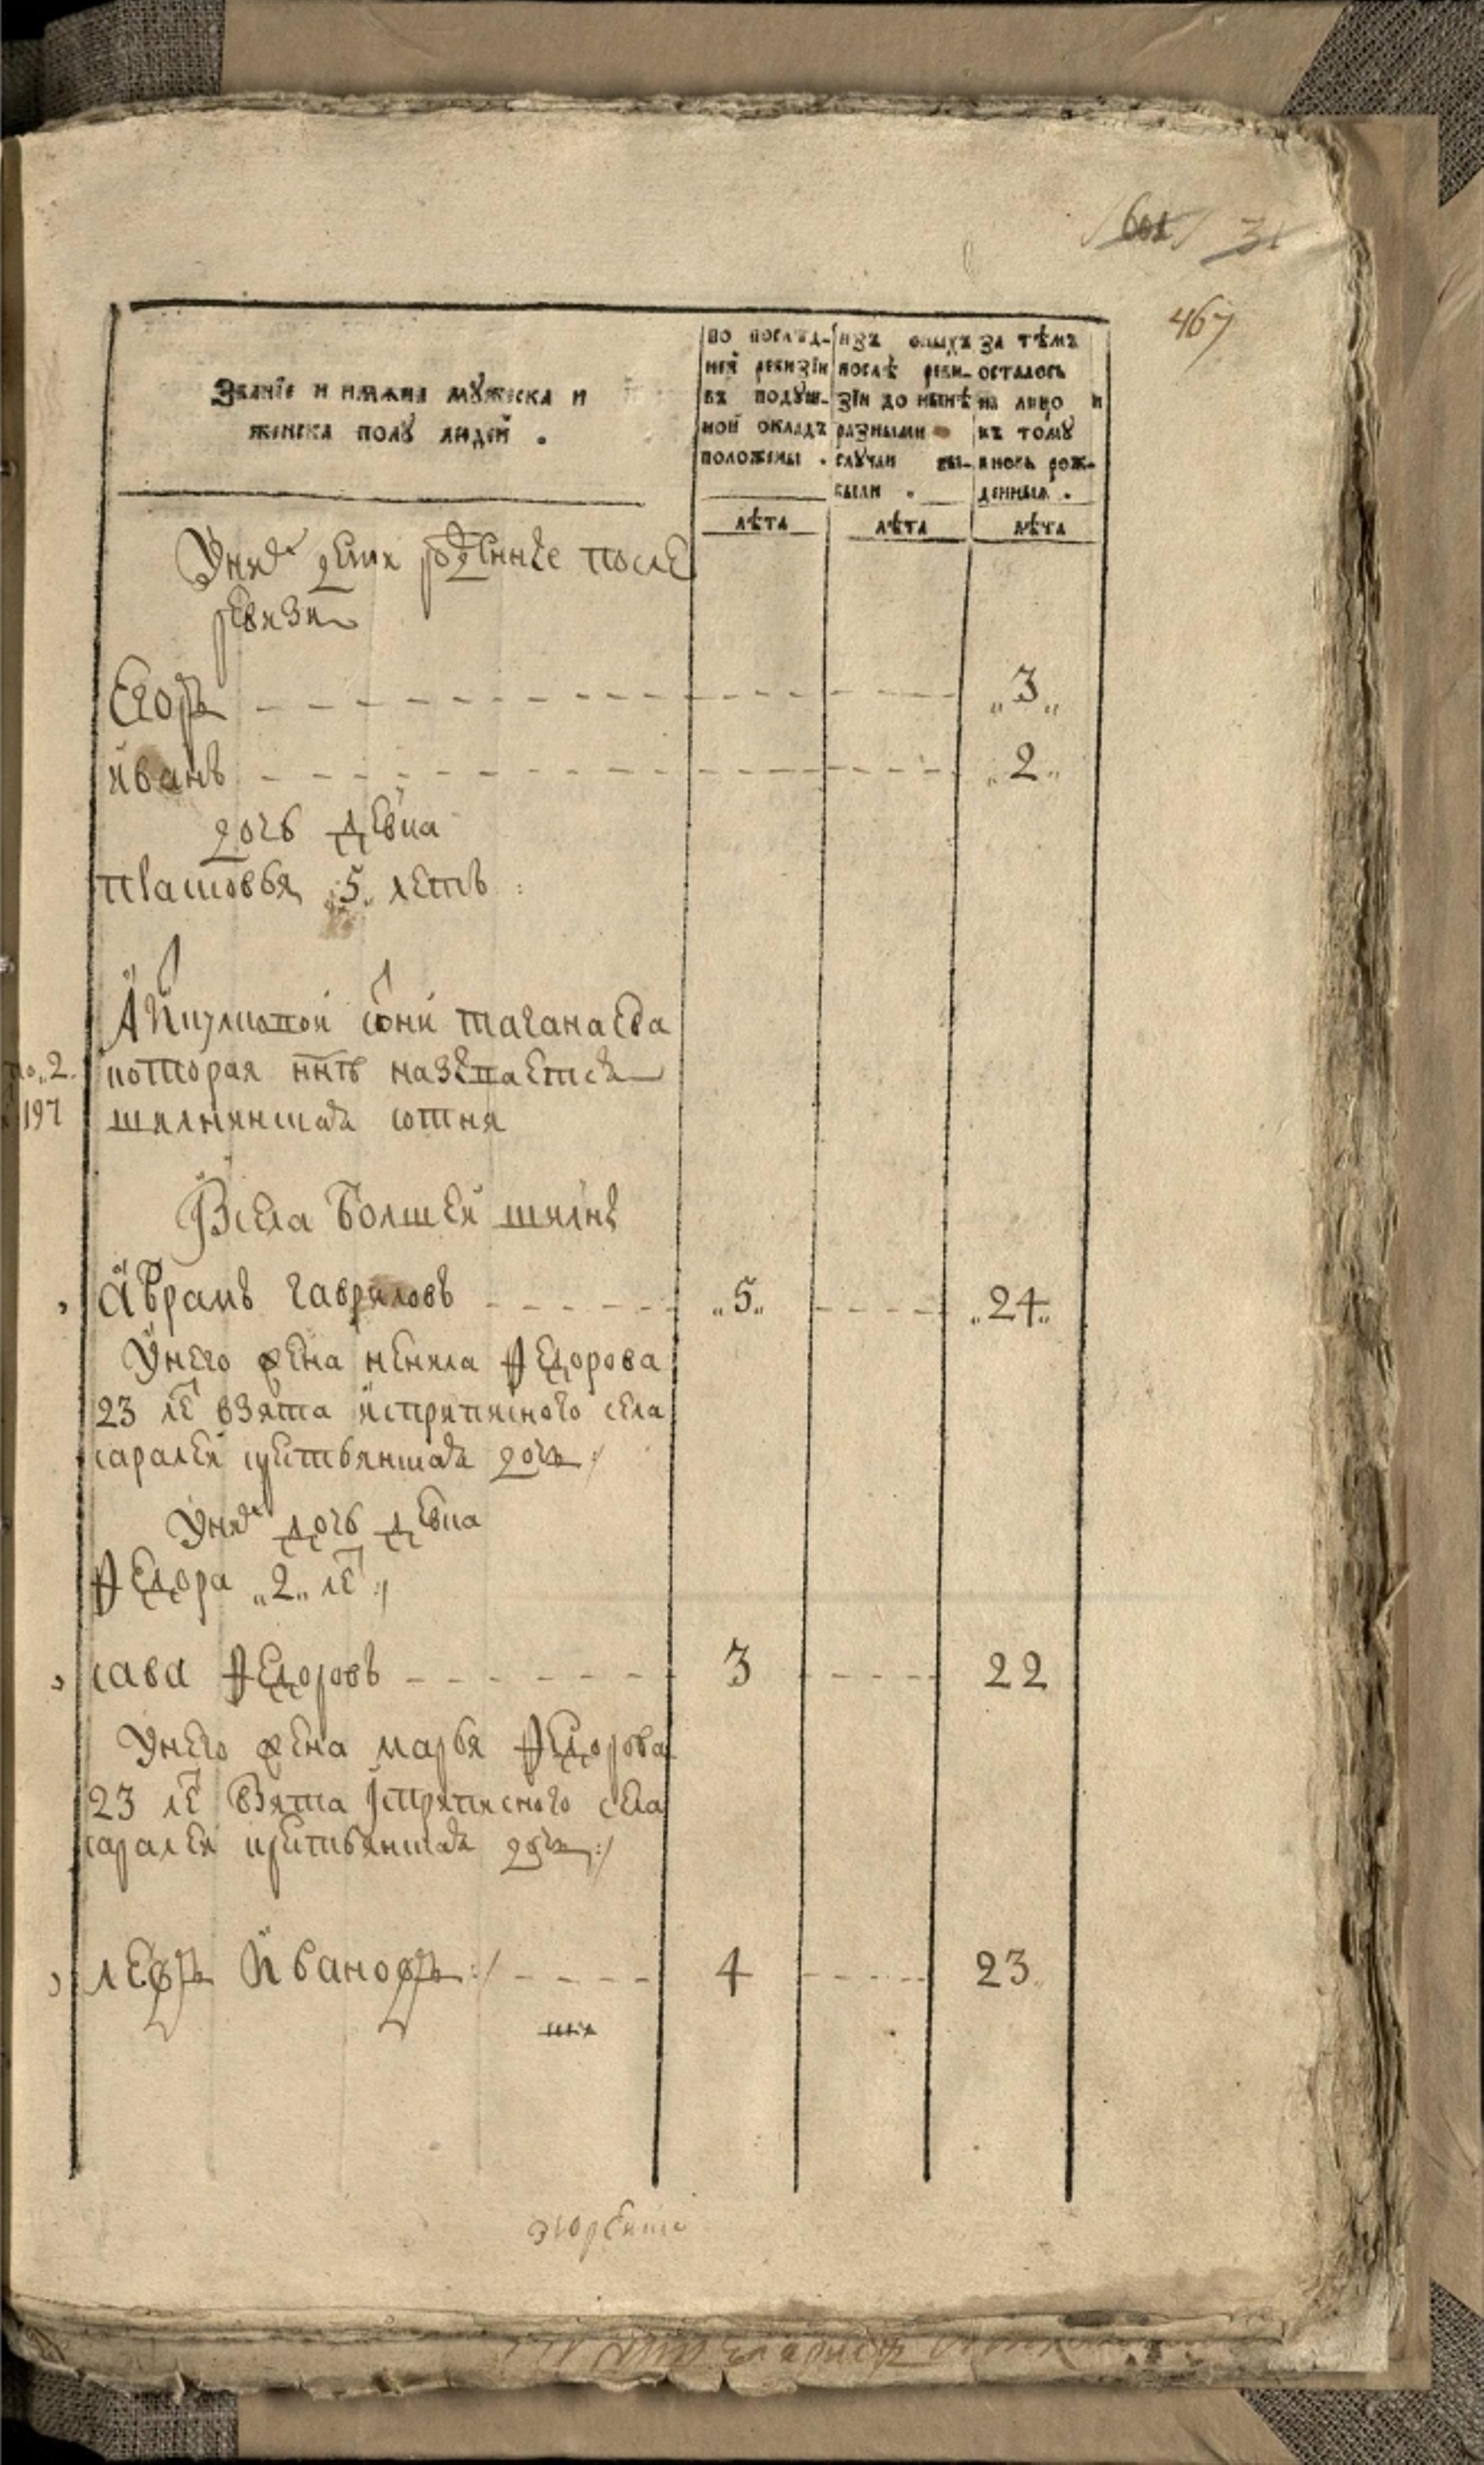 601 31
467
Званїе и имѧна мꙋжеска и
женска полꙋ людей .
по послѣд-
ней ревизїи
въ подꙋш-
ной окладъ
положены .
изъ оныхъ
послѣ реви-
зїи до нынѣ
разными
слꙋчаи вы-
были .
За тѣмъ
осталось
на лицо и
къ томꙋ
вновь рож-
денныя .
лѣта лѣта лѣта
Уних дети рожденные после
ревизи
Егоръ 3
иванъ 2
дочь девка
прасковья 5 летъ
сотни таганаева
no. 2. которая ннѣ называется
197 шилнинская сотня
Всела болшей шилне
Аврамъ гавриловъ 5 24
Унего жена ненила Федорова
23 ле взята исприписного села
саралеи крстьянская дочь
Уних дочь девка
Федора 2 ле
сава Федоровъ 3 22
Унего жена марья Федорова
23 ле взята исприписного села
саралеи крстьянская дочь
левъ Ивановъ 4 23